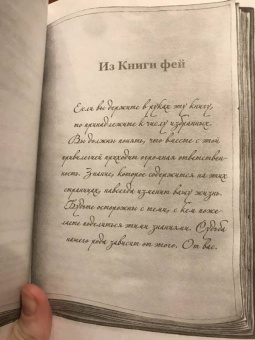 Из Книги фей
Если вы держите в руках эту книгу,
то принадлежите к числу избранных.
Вы должны понять, что вместе с этой
привилегией приходит огромная ответствен-
ность. Знание, которое содержится на этих
страницах, навсегда изменит вашу жизнь.
Будьте осторожны с теми, с кем поже-
лаете поделиться этими знаниями. Судьба
нашего рода зависит от того. От вас.